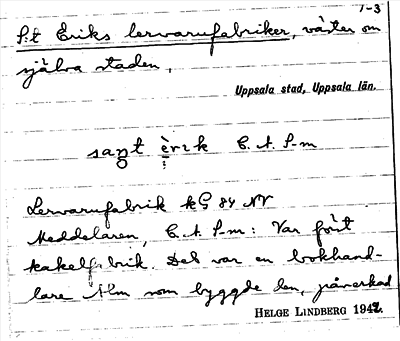 1-3
S:t Eriks lervarufabriker, väster om
själva staden,
Uppsala stad, Uppsala län.
sant èrik C. A. S-m
Lervarufabrik kG 84 NV
Meddelaren, C. A. S-m: Var först
kakelfabrik. Det var en bokhand-
lare Alm som byggde den, påverkad
HELGE LINDBERG 1942.